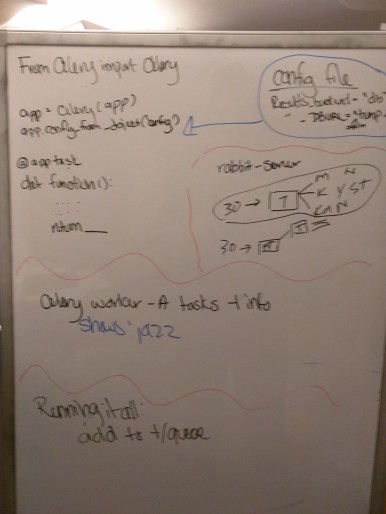 From Celery import Celery
app = Celery(app)
app.config_from_object(config)
@app.task
def function():
return __
config file
Results_backend = "db"
" - DBURL = "tmp
rabbit-server
30 → T
M N
K Y ST
30 → T
Celery worker -A tasks -l info
shows jazz
Running it all:
add to t/queue